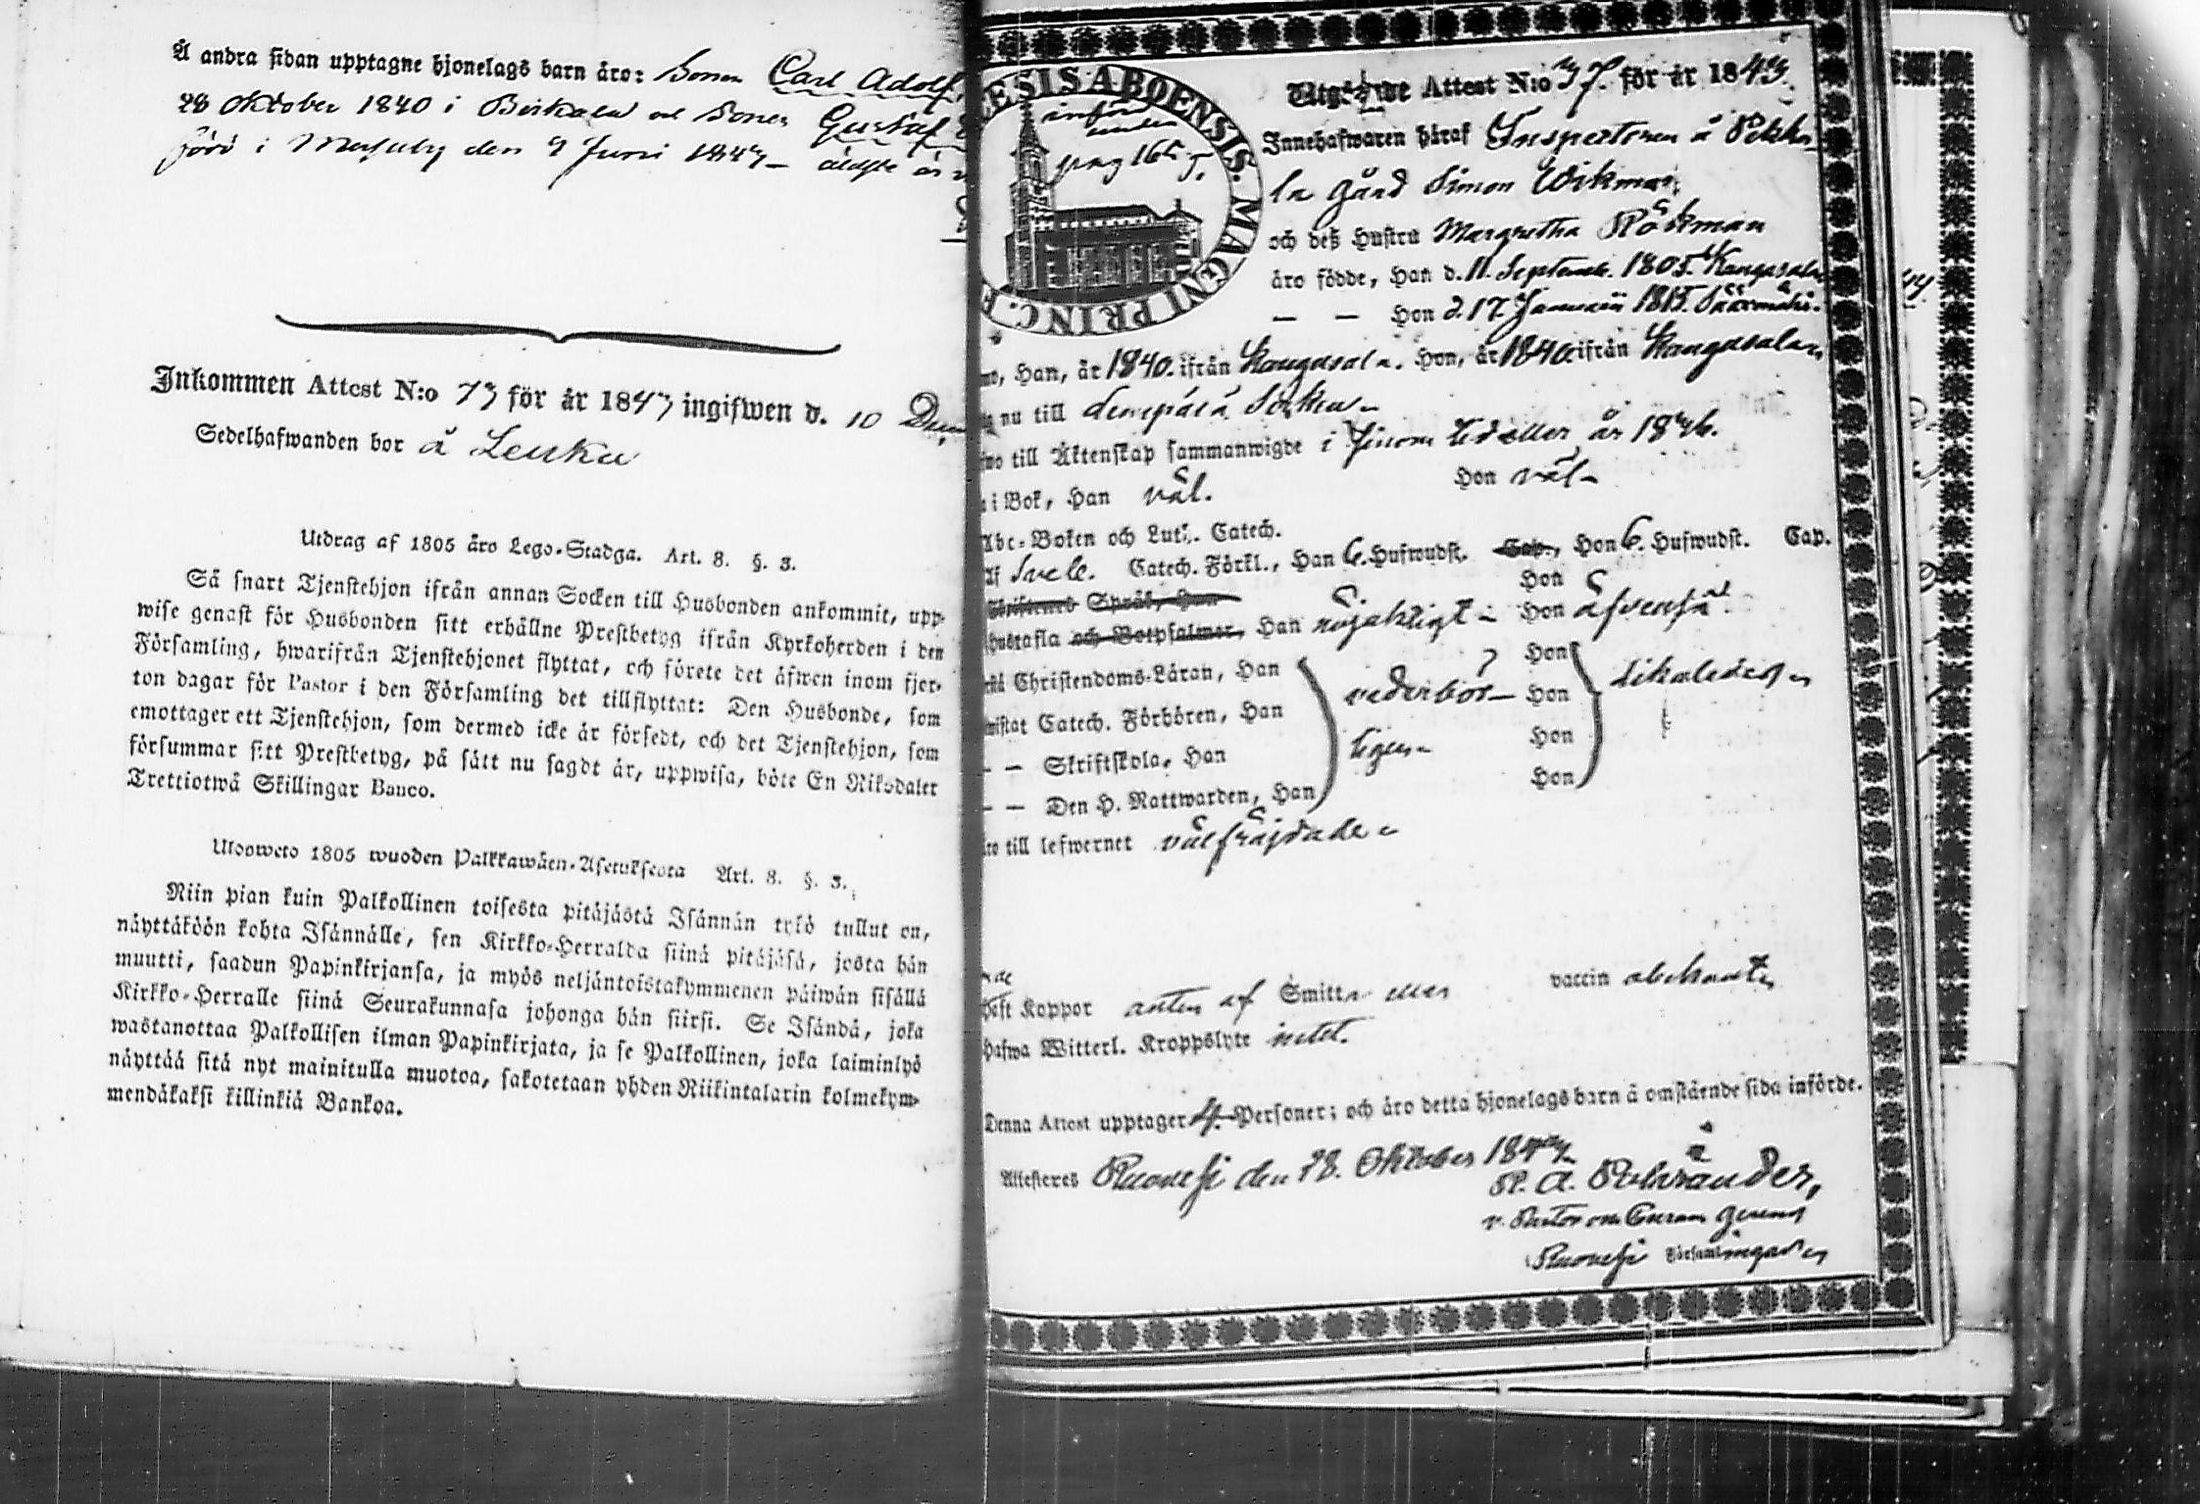 Å andra sidan upptagne hjonelags barn äro: Sonen Carl Adolf,
28 Oktober 1840 i Birkala och Sonen Gustaf
född i Messuby den 9 Juni 1843
Inkommen Attest N:o 73 för år 1843 ingifwen d. 10
Sedelhafwanden bor å Leuku
Utdrag af 1805 års Lego-Stadga. Art. 8. §. 3.
Så snart Tjenstehjon ifrån annan Socken till Husbonden ankommit, upp-
wise genast för Husbonden sitt erhållne Prestbetyg ifrån Kyrkoherden i den
Församling, hwarifrån Tjenstehjonet flyttat, och förete det äfwen inom fjor-
ton dagar för Pastor i den Församling det tillflyttat: Den Husbonde, som
emottager ett Tjenstehjon, som dermed icke är försedt, och det Tjenstehjon, som
försummar sitt Prestbetyg, på sätt nu sagdt är, uppwisa, böte En Riksdaler
Trettiotwå Skillingar Banco.
Ulosweto 1805 wuoden Palkkawäen-Asetuksesta Art. 8. §. 3.
Niin pian kuin Palkollinen toisesta pitäjästä Isännän tykö tullut on,
näyttäköön kohta Isännälle, sen Kirkko-Herralda siinä pitäjäsä, josta hän
muutti, saadun Papinkirjansa, ja myös neljäntoistakymmenen päiwän sisällä
Kirkko-Herralle siinä Seurakunnasa johonga hän siirsi. Se Isändä, joka
wastanottaa Palkollisen ilman Papinkirjata, ja se Palkollinen, joka laiminlyö
näyttää sitä nyt mainitulla muotoa, sakotetaan yhden Riikintalarin kolmekym-
mendäkaksi killinkiä Bankoa.
ESIS ABOENSIS. MAGNI PRINC. F
införd
under
pag 165
Utgående Attest N:o 37. för år 1843.
Innehafwaren häraf Inspectoren å Pekka
la gård Simon Wikman
och deß Hustru Margretha Röökman
äro födde, Han d. 11. Septemb. 1805. Kangasala
— — Hon d. 17. Januarii 1815. Sääxmäki.
Han, år 1840. ifrån Kangasala. Hon, år 1840 ifrån Kangasala
nu till Lempäälä Socken
till Äktenskap sammanwigde i
i Bok, Han väl. Hon väl
Abc-Boken och Luth. Catech.
Af Sveb. Catech. Förkl., Han 6. Hufwudst. Cap., Hon 6. Hufwudst. Cap.
Språk, Han Hon
Hustafla och Botpsalmer, Han nöjaktigt Hon äfvenså
Christendoms-Läran, Han Hon
Catech. Förhören, Han vederbör- Hon likaledes
— — Skriftskola, Han ligen Hon
— — Den H. Nattwarden, Han Hon
till lefwernet välfräjdade
Koppor anten af Smitta eller vaccin obekant
Hafwa Witterl. Kroppslyte intet.
Denna Attest upptager 4. Personer; och äro detta hjonelags barn å omstående sida införde.
Attesteres Ruovesi den 28. Oktober 1843
v. Pastor
Ruovesi Församlingar